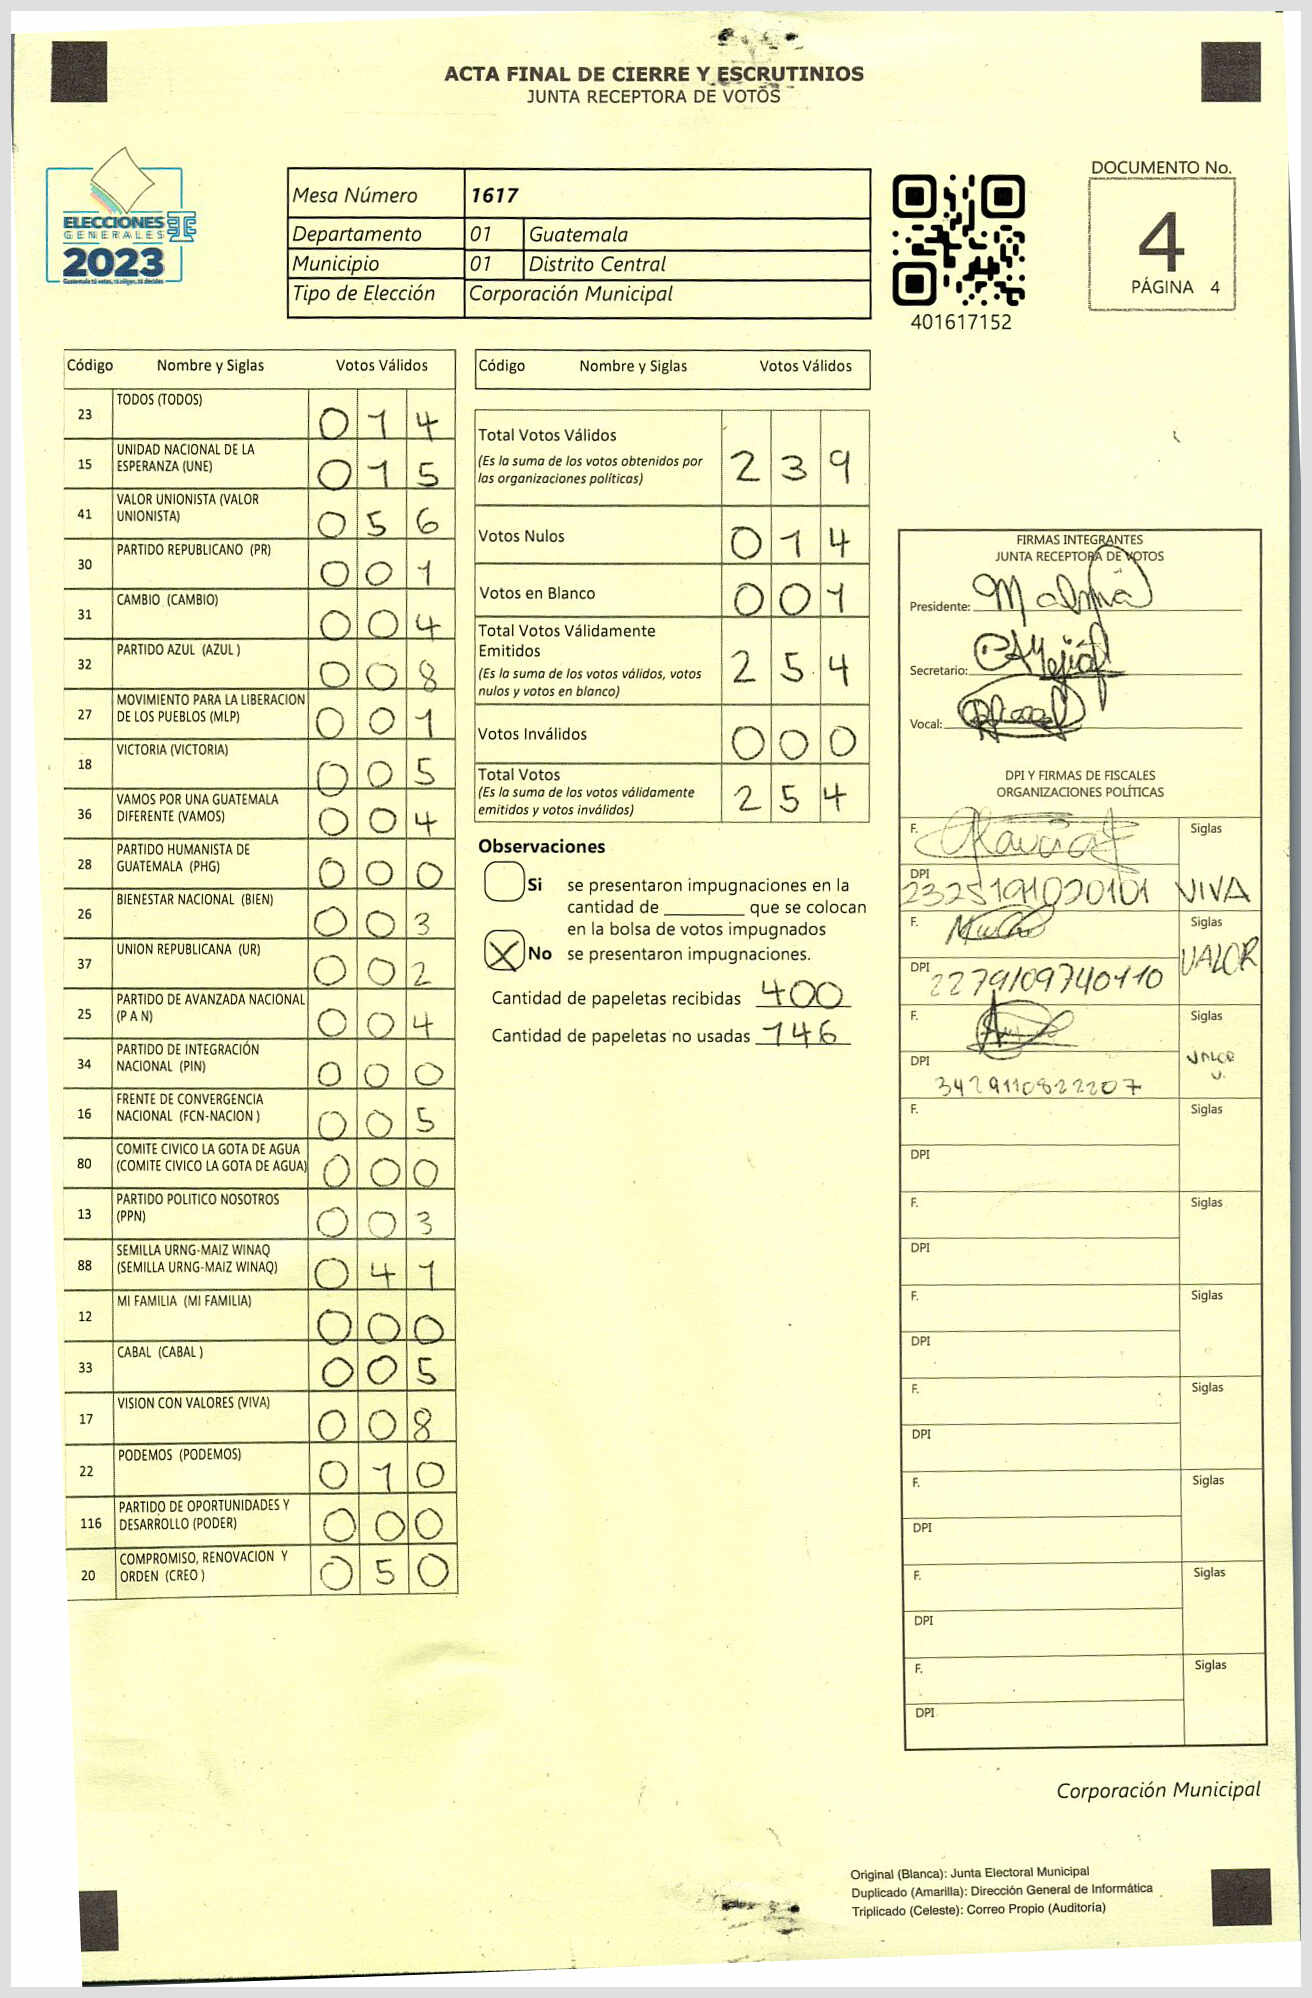 ACTA FINAL DE CIERRE Y ESCRUTINIOS
JUNTA RECEPTORA DE VOTOS
ELECCIONES
GENERALES
2023
Guatemala tú votas, tú eliges, tú decides
Mesa Número 1617
Departamento 01 Guatemala
Municipio 01 Distrito Central
Tipo de Elección Corporación Municipal
401617152
DOCUMENTO No.
4
PÁGINA 4
Código Nombre y Siglas Votos Válidos
23 TODOS (TODOS) 0 1 4
15 UNIDAD NACIONAL DE LA
ESPERANZA (UNE) 0 1 5
41 VALOR UNIONISTA (VALOR
UNIONISTA) 0 5 6
30 PARTIDO REPUBLICANO (PR) 0 0 1
31 CAMBIO (CAMBIO) 0 0 4
32 PARTIDO AZUL (AZUL ) 0 0 8
27 MOVIMIENTO PARA LA LIBERACION
DE LOS PUEBLOS (MLP) 0 0 1
18 VICTORIA (VICTORIA) 0 0 5
36 VAMOS POR UNA GUATEMALA
DIFERENTE (VAMOS) 0 0 4
28 PARTIDO HUMANISTA DE
GUATEMALA (PHG) 0 0 0
26 BIENESTAR NACIONAL (BIEN) 0 0 3
37 UNION REPUBLICANA (UR) 0 0 2
25 PARTIDO DE AVANZADA NACIONAL
(P A N) 0 0 4
34 PARTIDO DE INTEGRACIÓN
NACIONAL (PIN) 0 0 0
16 FRENTE DE CONVERGENCIA
NACIONAL (FCN-NACION ) 0 0 5
80 COMITE CIVICO LA GOTA DE AGUA
(COMITE CIVICO LA GOTA DE AGUA) 0 0 0
13 PARTIDO POLITICO NOSOTROS
(PPN) 0 0 3
88 SEMILLA URNG-MAIZ WINAQ
(SEMILLA URNG-MAIZ WINAQ) 0 4 1
12 MI FAMILIA (MI FAMILIA) 0 0 0
33 CABAL (CABAL ) 0 0 5
17 VISION CON VALORES (VIVA) 0 0 8
22 PODEMOS (PODEMOS) 0 1 0
116 PARTIDO DE OPORTUNIDADES Y
DESARROLLO (PODER) 0 0 0
20 COMPROMISO, RENOVACION Y
ORDEN (CREO ) 0 5 0
Código Nombre y Siglas Votos Válidos
Total Votos Válidos
(Es la suma de los votos obtenidos por
las organizaciones políticas) 2 3 9
Votos Nulos 0 1 4
Votos en Blanco 0 0 1
Total Votos Válidamente
Emitidos
(Es la suma de los votos válidos, votos
nulos y votos en blanco) 2 5 4
Votos Inválidos 0 0 0
Total Votos
(Es la suma de los votos válidamente
emitidos y votos inválidos) 2 5 4
Observaciones
Si se presentaron impugnaciones en la
cantidad de ________ que se colocan
en la bolsa de votos impugnados
X No se presentaron impugnaciones.
Cantidad de papeletas recibidas 400
Cantidad de papeletas no usadas 146
FIRMAS INTEGRANTES
JUNTA RECEPTORA DE VOTOS
Presidente:
Secretario:
Vocal:
DPI Y FIRMAS DE FISCALES
ORGANIZACIONES POLÍTICAS
F. Siglas
DPI
2325191020101 VIVA
F. Siglas
VALOR
DPI 2279109740110
F. Siglas
DPI
3429110822207
F. Siglas
DPI
F. Siglas
DPI
F. Siglas
DPI
F. Siglas
DPI
F. Siglas
DPI
F. Siglas
DPI
F. Siglas
DPI
Corporación Municipal
Original (Blanca): Junta Electoral Municipal
Duplicado (Amarilla): Dirección General de Informática
Triplicado (Celeste): Correo Propio (Auditoría)